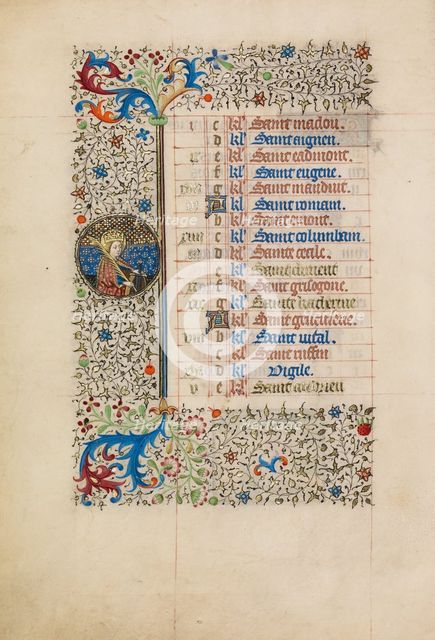 c kl' Saint maclou.
d kl' Saint aignen.
e kl' Saint eadmont.
f kl' Saint eugene.
g kl' Saint manduit.
A kl' Saint romain.
b kl' Saint
c kl' Saint columbam.
d kl' Sainte cecile.
e kl' Saint clement
f kl' Saint grisogone.
g kl' Sainte katherine
A kl' Sainte
b kl' Saint vital.
c kl' Saint ruffin
d kl' Vigile.
v e kl' Saint andrieu
Heritage
Images